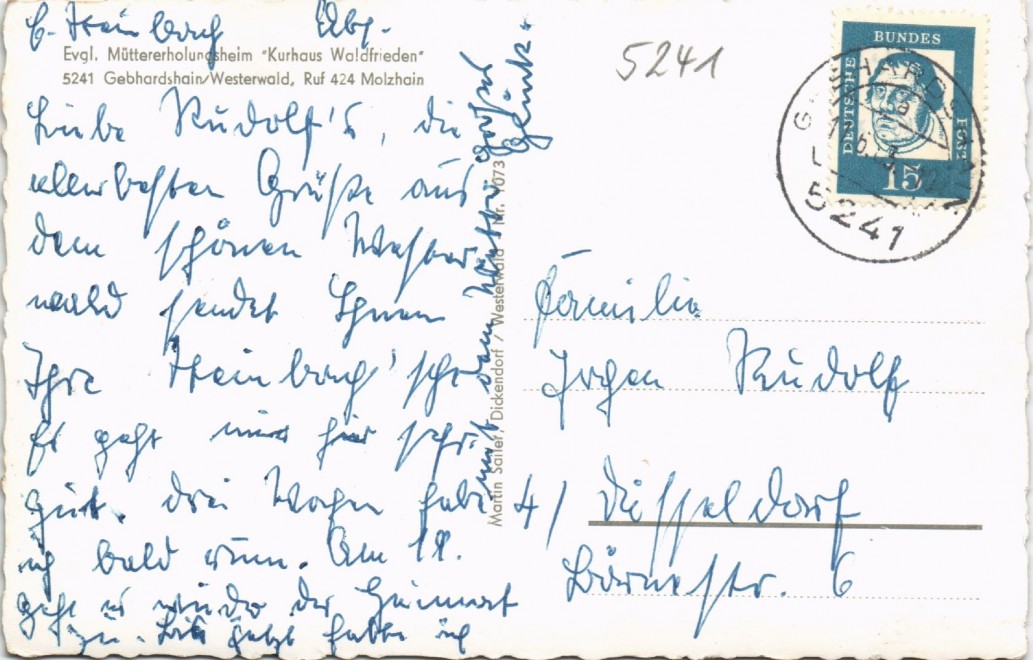 E. Steinbach Abs.
Evgl. Müttererholungsheim "Kurhaus Waldfrieden"
5241 Gebhardshain/Westerwald, Ruf 424 Molzhain
Liebe Rudolf's, die
allerbesten Grüße aus
dem schönen Wester
wald sendet Ihnen
Ihre Steinbach'sche
Es geht mir hier sehr
gut. drei Wochen habe
ich bald rum. Am 18.
geht es wieder der Heimat
zu. Bis jetzt hatte ich
mit dem Wetter großes
Glück.
Martin Sailer, Dickendorf / Westerwald Nr. 1073
5241
DEUTSCHE BUNDESPOST
15
GEBHARDSHAIN
5241
Familie
Jochen Rudolf
4/ Düsseldorf
Börnestr. 6